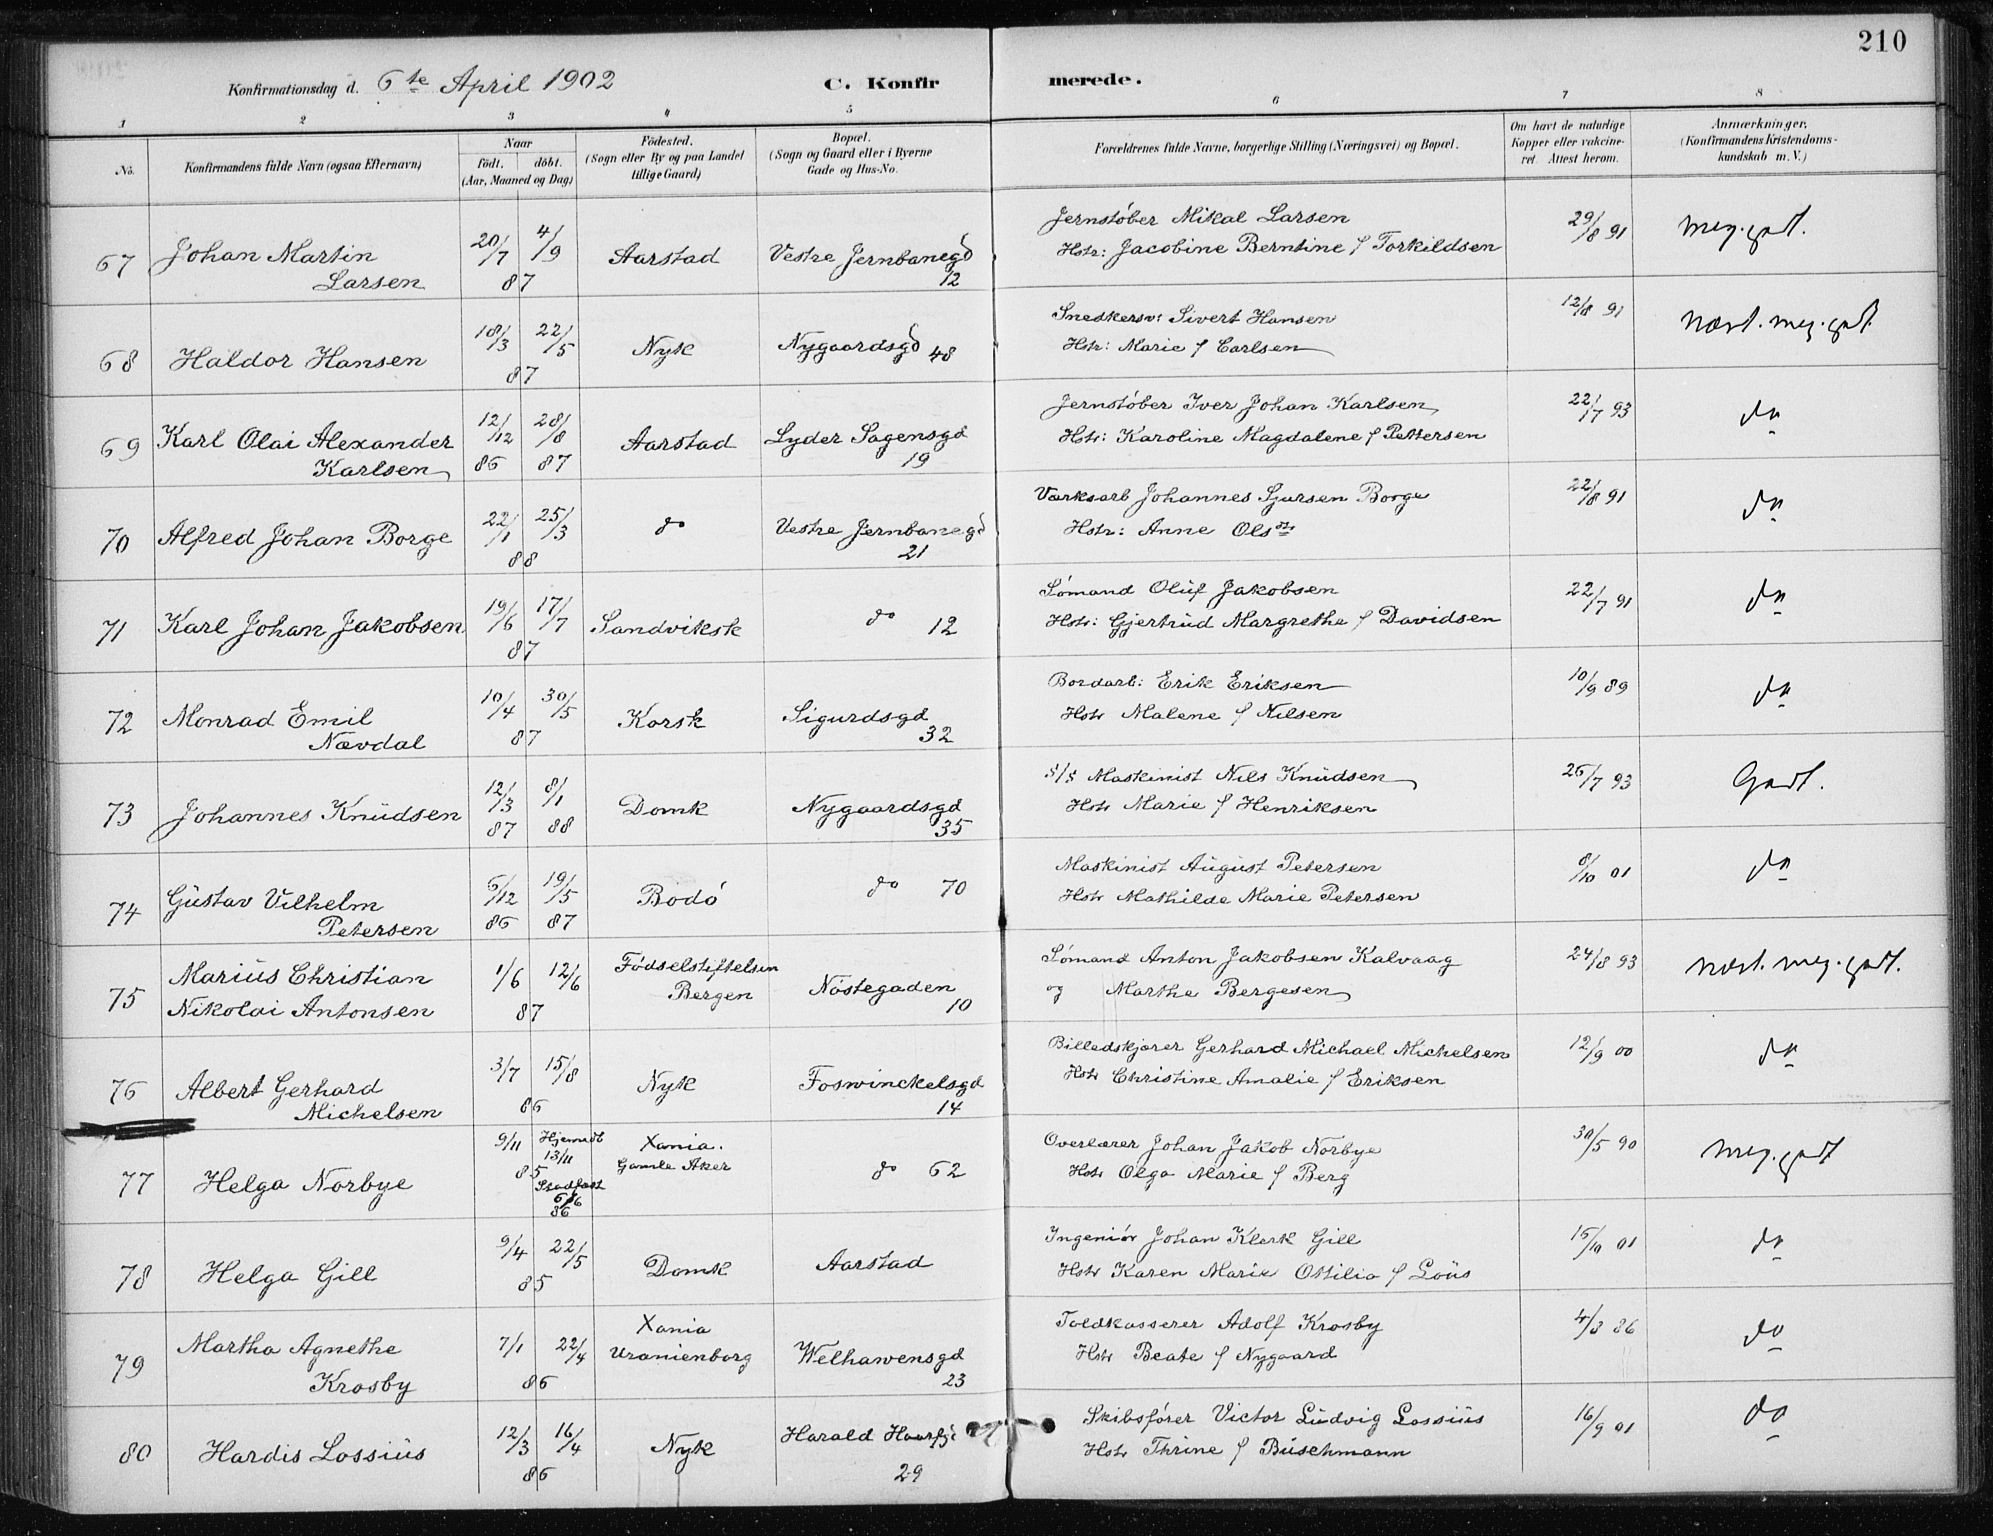 210
Konfirmationsdag d. 6te April 1902 C. Konfirmerede.
1 2 3 4 5 6 7 8
No. Konfirmandens fulde Navn (ogsaa Efternavn) Naar födt. döbt. (Aar, Maaned og Dag) Födested. (Sogn eller By og paa Landet tillige Gaard) Bopæl. (Sogn og Gaard eller i Byerne Gade og Hus-No. Forældrenes fulde Navne, borgerlige Stilling (Næringsvei) og Bopæl. Om havt de naturlige Kopper eller vakcineret. Attest herom. Anmærkninger. (Konfirmandens Kristendomskundskab m. V.)
67 Johan Martin Larsen 20/7 4/9 87 Aarstad Vestre Jernbanegd 12 Jernstøber Mikal Larsen 29/8 91 meg. godt.
Hstr: Jacobine Berntine f Torkildsen
68 Haldor Hansen 18/3 22/5 87 Nyk Nygaardsgd 48 Snedkersv: Sivert Hansen 12/8 91 Næst. meg. godt.
Hstr: Marie f Carlsen
69 Karl Olai Alexander Karlsen 12/12 86 28/8 87 Aarstad Lyder Sagensgd 19 Jernstøber Iver Johan Karlsen 22/7 93 do
Hstr: Karoline Magdalene f Pettersen
70 Alfred Johan Borge 22/1 25/3 88 do Vestre Jernbanegd 21 Værksarb Johannes Sjursen Borge 22/8 91 do
Hstr: Anne Olsdtr
71 Karl Johan Jakobsen 19/6 17/7 87 Sandviksk do 12 Sømand Oluf Jakobsen 22/7 91 do
Hstr: Gjertrud Margrethe f Davidsen
72 Monrad Emil Nævdal 10/4 30/5 87 Korsk Sigurdsgd 32 Bordarb: Erik Eriksen 10/9 89 do
Hstr Malene f Nilsen
73 Johannes Knudsen 12/3 87 8/1 88 Domk Nygaardsgd 35 S/S Maskinist Nils Knudsen 26/7 93 Godt.
Hstr Marie f Henriksen
74 Gustav Vilhelm Petersen 6/12 86 19/5 87 Bodó do 70 Maskinist August Petersen 8/10 01 do
Hstr Mathilde Marie Petersen
75 Marius Christian Nikolai Antonsen 1/6 12/6 87 Fødselstiftelsen Bergen Nöstegaden 10 Sømand Anton Jakobsen Kalvaag 24/8 93 Næst. meg. godt.
og Marthe Bergesen
76 Albert Gerhard Michelsen 3/7 15/8 86 Nyk Foswinckelsgd 14 Billedskjærer Gerhard Michael Michelsen 12/9 00 do
Hstr Christine Amalie f Eriksen
77 Helga Norbye 9/11 85 Hjemdt 13/11 Stadfæst 6/6 86 Xania. Gamle Aker do 62 Overlærer Johan Jakob Norbye 30/5 90 meg. godt
Hstr Olga Marie f Berg
78 Helga Gill 9/4 22/5 85 Domk Aarstad Ingeniør Johan Klerk Gill 15/10 01 do
Hstr Karen Marie Ottilia f Lous
79 Martha Agnethe Krosby 7/1 22/4 86 Xania Uranienborg Welhavensgd 23 Toldkasserer Adolf Krosby 4/3 86 do
Hstr Beate f Nygaard
80 Hardis Lossius 12/3 16/4 86 Nyk Harald Haarfg 29 Skibsfører Victor Ludvig Lossius 16/9 01 do
Hstr Thrine f Buschmann